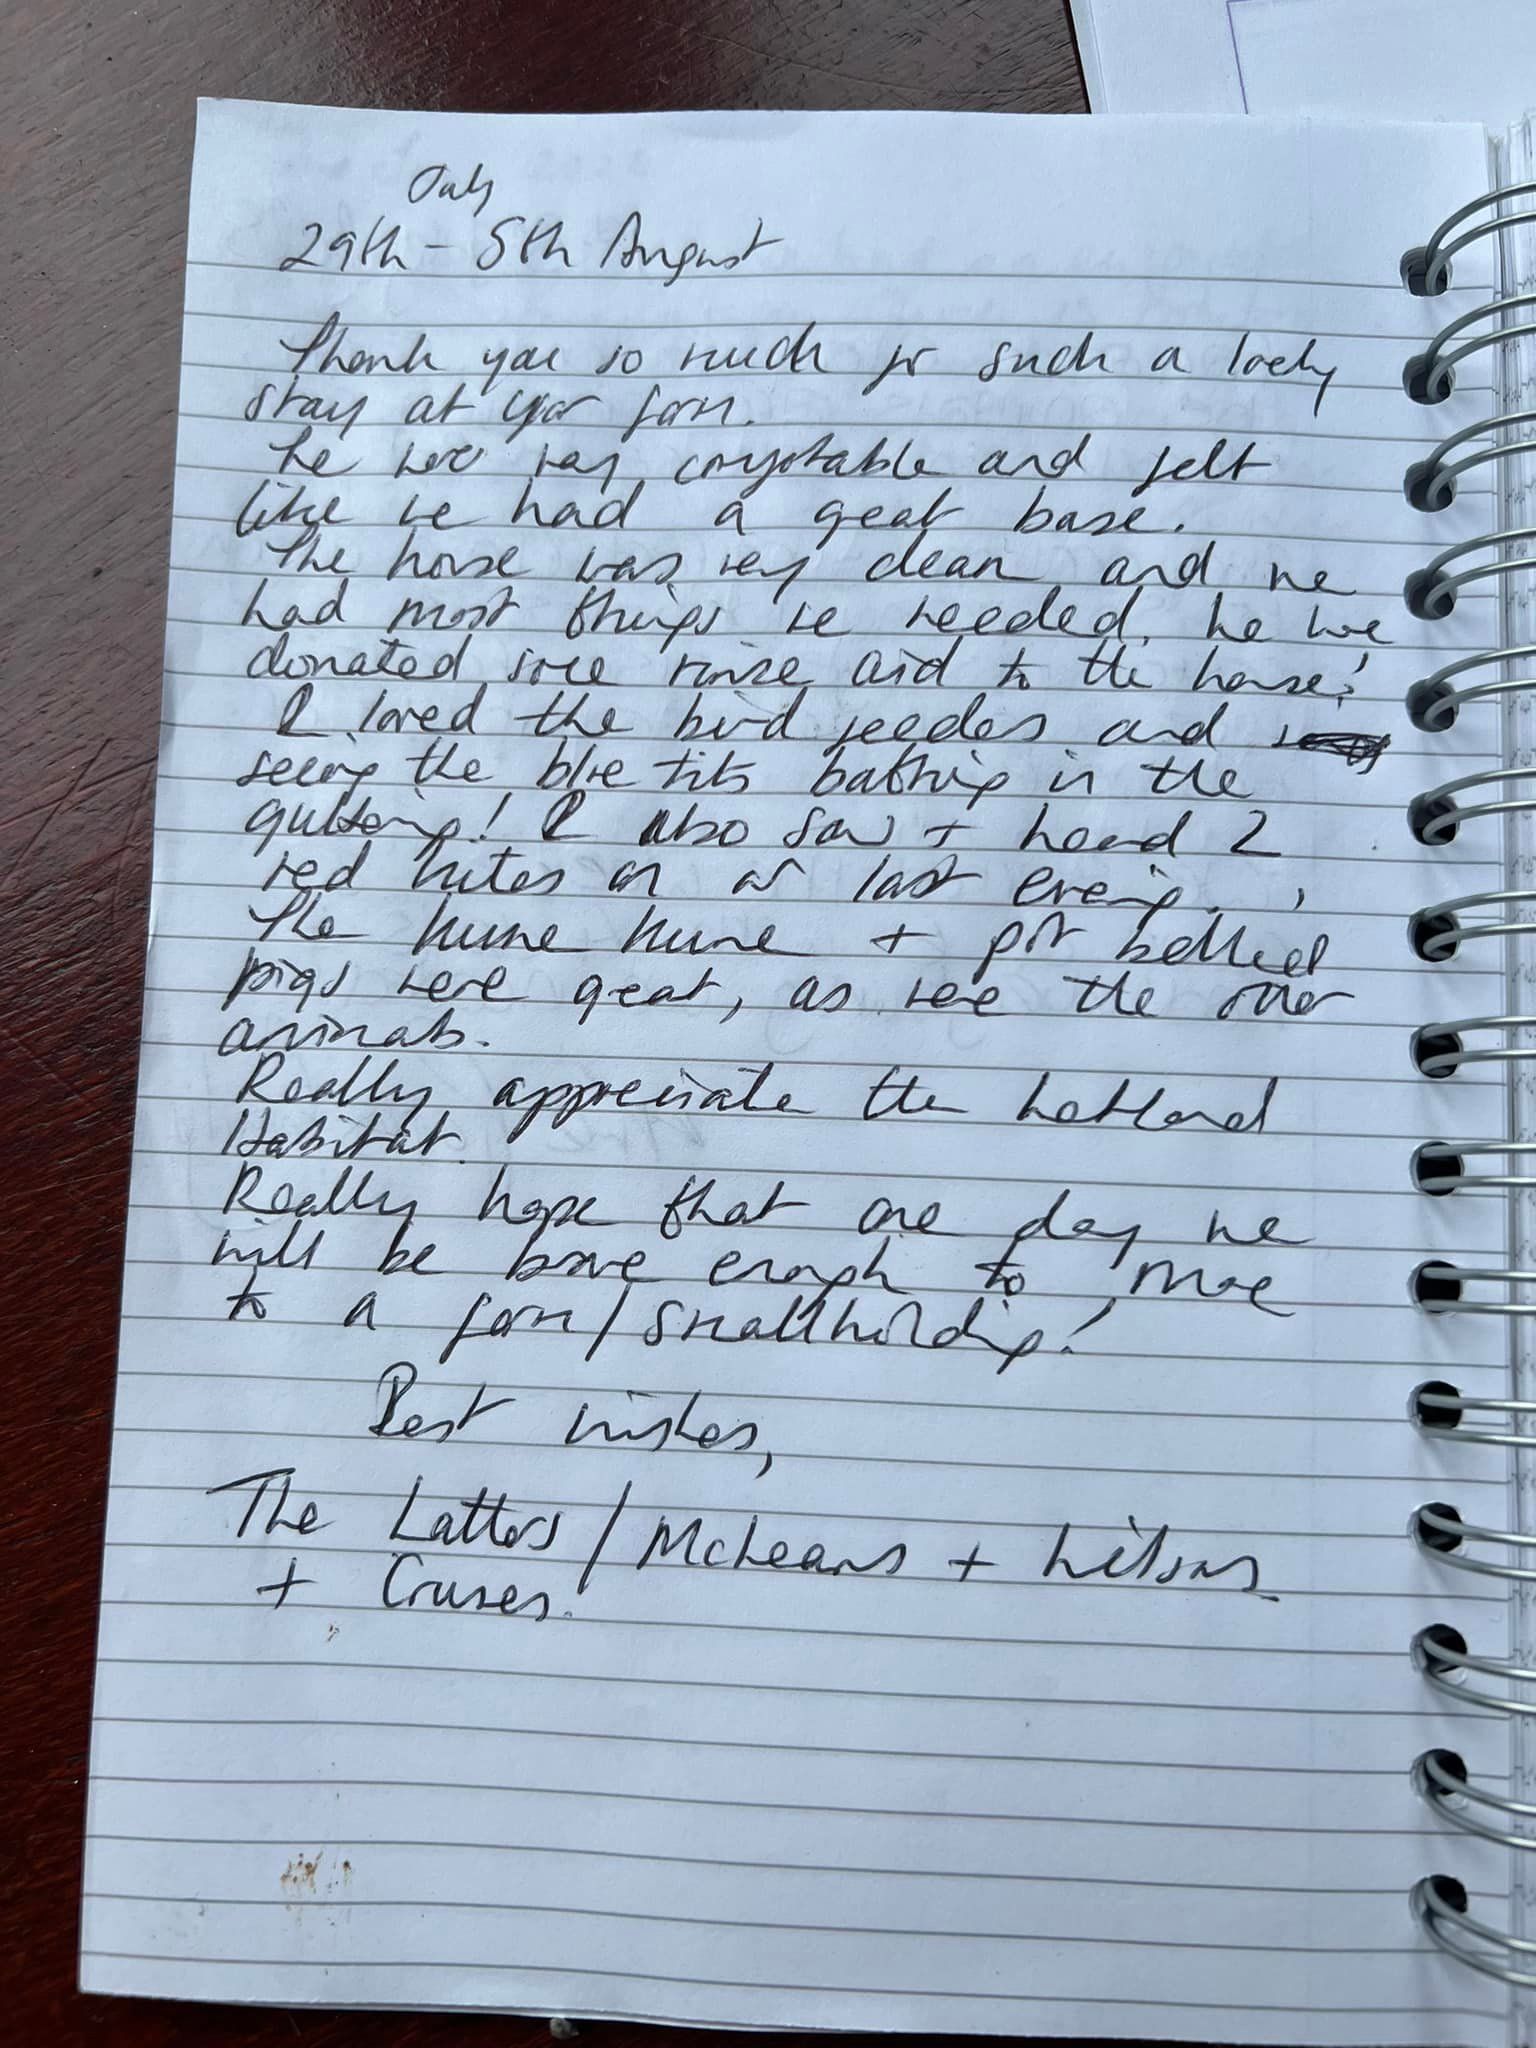 July
29th - 5th August
Thank you so much for such a lovely
stay at your farm.
We were very comfortable and felt
like we had a great base.
The house was very clean and we
had most things we needed. We have
donated some rinse aid to the house!
I loved the bird feeders and
seeing the blue tits bathing in the
guttering! I also saw + heard 2
red kites on our last evening.
The Kune Kune + pot bellied
pigs were great, as were the other
animals.
Really appreciate the wetland
Habitat.
Really hope that one day we
will be brave enough to move
to a farm / smallholding!
Best wishes,
The Latters / McLeans + Wilsons
+ Cruses.